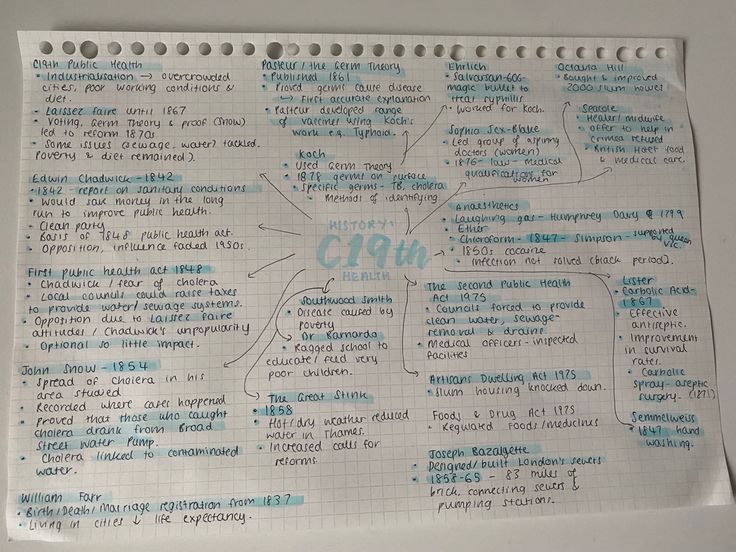 C19th Public Health
• Industrialisation → overcrowded
cities, poor working conditions &
diet.
• Laissez faire until 1867
• Voting, Germ Theory & proof (Snow)
led to reform 1870s
• Some issues (sewage, water) tackled.
Poverty & diet remained).
Edwin Chadwick - 1842
• 1842 - report on sanitary conditions
• Would save money in the long
run to improve public health.
• Clean party
• Basis of 1848 public health act.
• Opposition, influence faded 1950s.
First public health act 1848
• Chadwick / fear of cholera
• Local councils could raise taxes
to provide water/sewage systems.
• Opposition due to Laissez faire
attitudes / Chadwick's unpopularity
• Optional so little impact.
John Snow - 1854
• Spread of cholera in his
area studied
• Recorded where cases happened
• proved that those who caught
cholera drank from Broad
Street Water Pump.
• Cholera linked to contaminated
water.
William Farr
• Birth/Death/Marriage registration from 1837
• Living in cities ↓ life expectancy.
Pasteur / the Germ Theory
• Published 1861
• Proved germs cause disease
↳ First accurate explanation
• Pasteur developed range
of vaccines using Koch's
work e.g. Typhoid.
Koch
• Used Germ Theory
• 1878 germs on
• Specific germs - TB, cholera
• Methods of identifying
HISTORY:
C19th
HEALTH
Southwood Smith
• Disease caused by
poverty
Dr Barnardo
• Ragged school to
educate/feed very
poor children.
The Great Stink
• 1858
• Hot/dry weather reduced
water in Thames.
• Increased calls for
reforms.
Ehrlich
• Salvarsan-606-
magic bullet to
treat syphillis
• Worked for Koch.
Sophia Jex-Blake
• Led group of aspiring
doctors (women)
• 1876 - law - medical
qualifications for
women
Octavia Hill
• Bought & improved
2000 slum houses
Seacole
• Healer/midwife
• Offer to help in
Crimea refused
• British Hotel food
& medical care.
Anaesthetics
• Laughing gas - Humphrey Davy 1799
• Ether
• Chloroform - 1847 - Simpson - supported
by queen
Vic.
• 1850s cocaine
• Infection not solved (black period).
The Second Public Health
Act 1975
• Councils forced to provide
clean water, sewage-
removal & drains.
• Medical officers - inspected
facilities
Artisans Dwelling Act 1975
• Slum housing knocked down.
Foods & Drug Act 1975
• Regulated foods/medicines
Joseph Bazalgette
• Designed/built London's sewers
• 1858-65 - 83 miles of
brick, connecting sewers &
pumping stations.
Lister
• Carbolic Acid-
1867
• Effective
antiseptic.
• Improvement
in survival
rates.
• Carbolic
spray - aseptic
surgery. (1871)
Semmelweiss
• 1847 hand
washing.